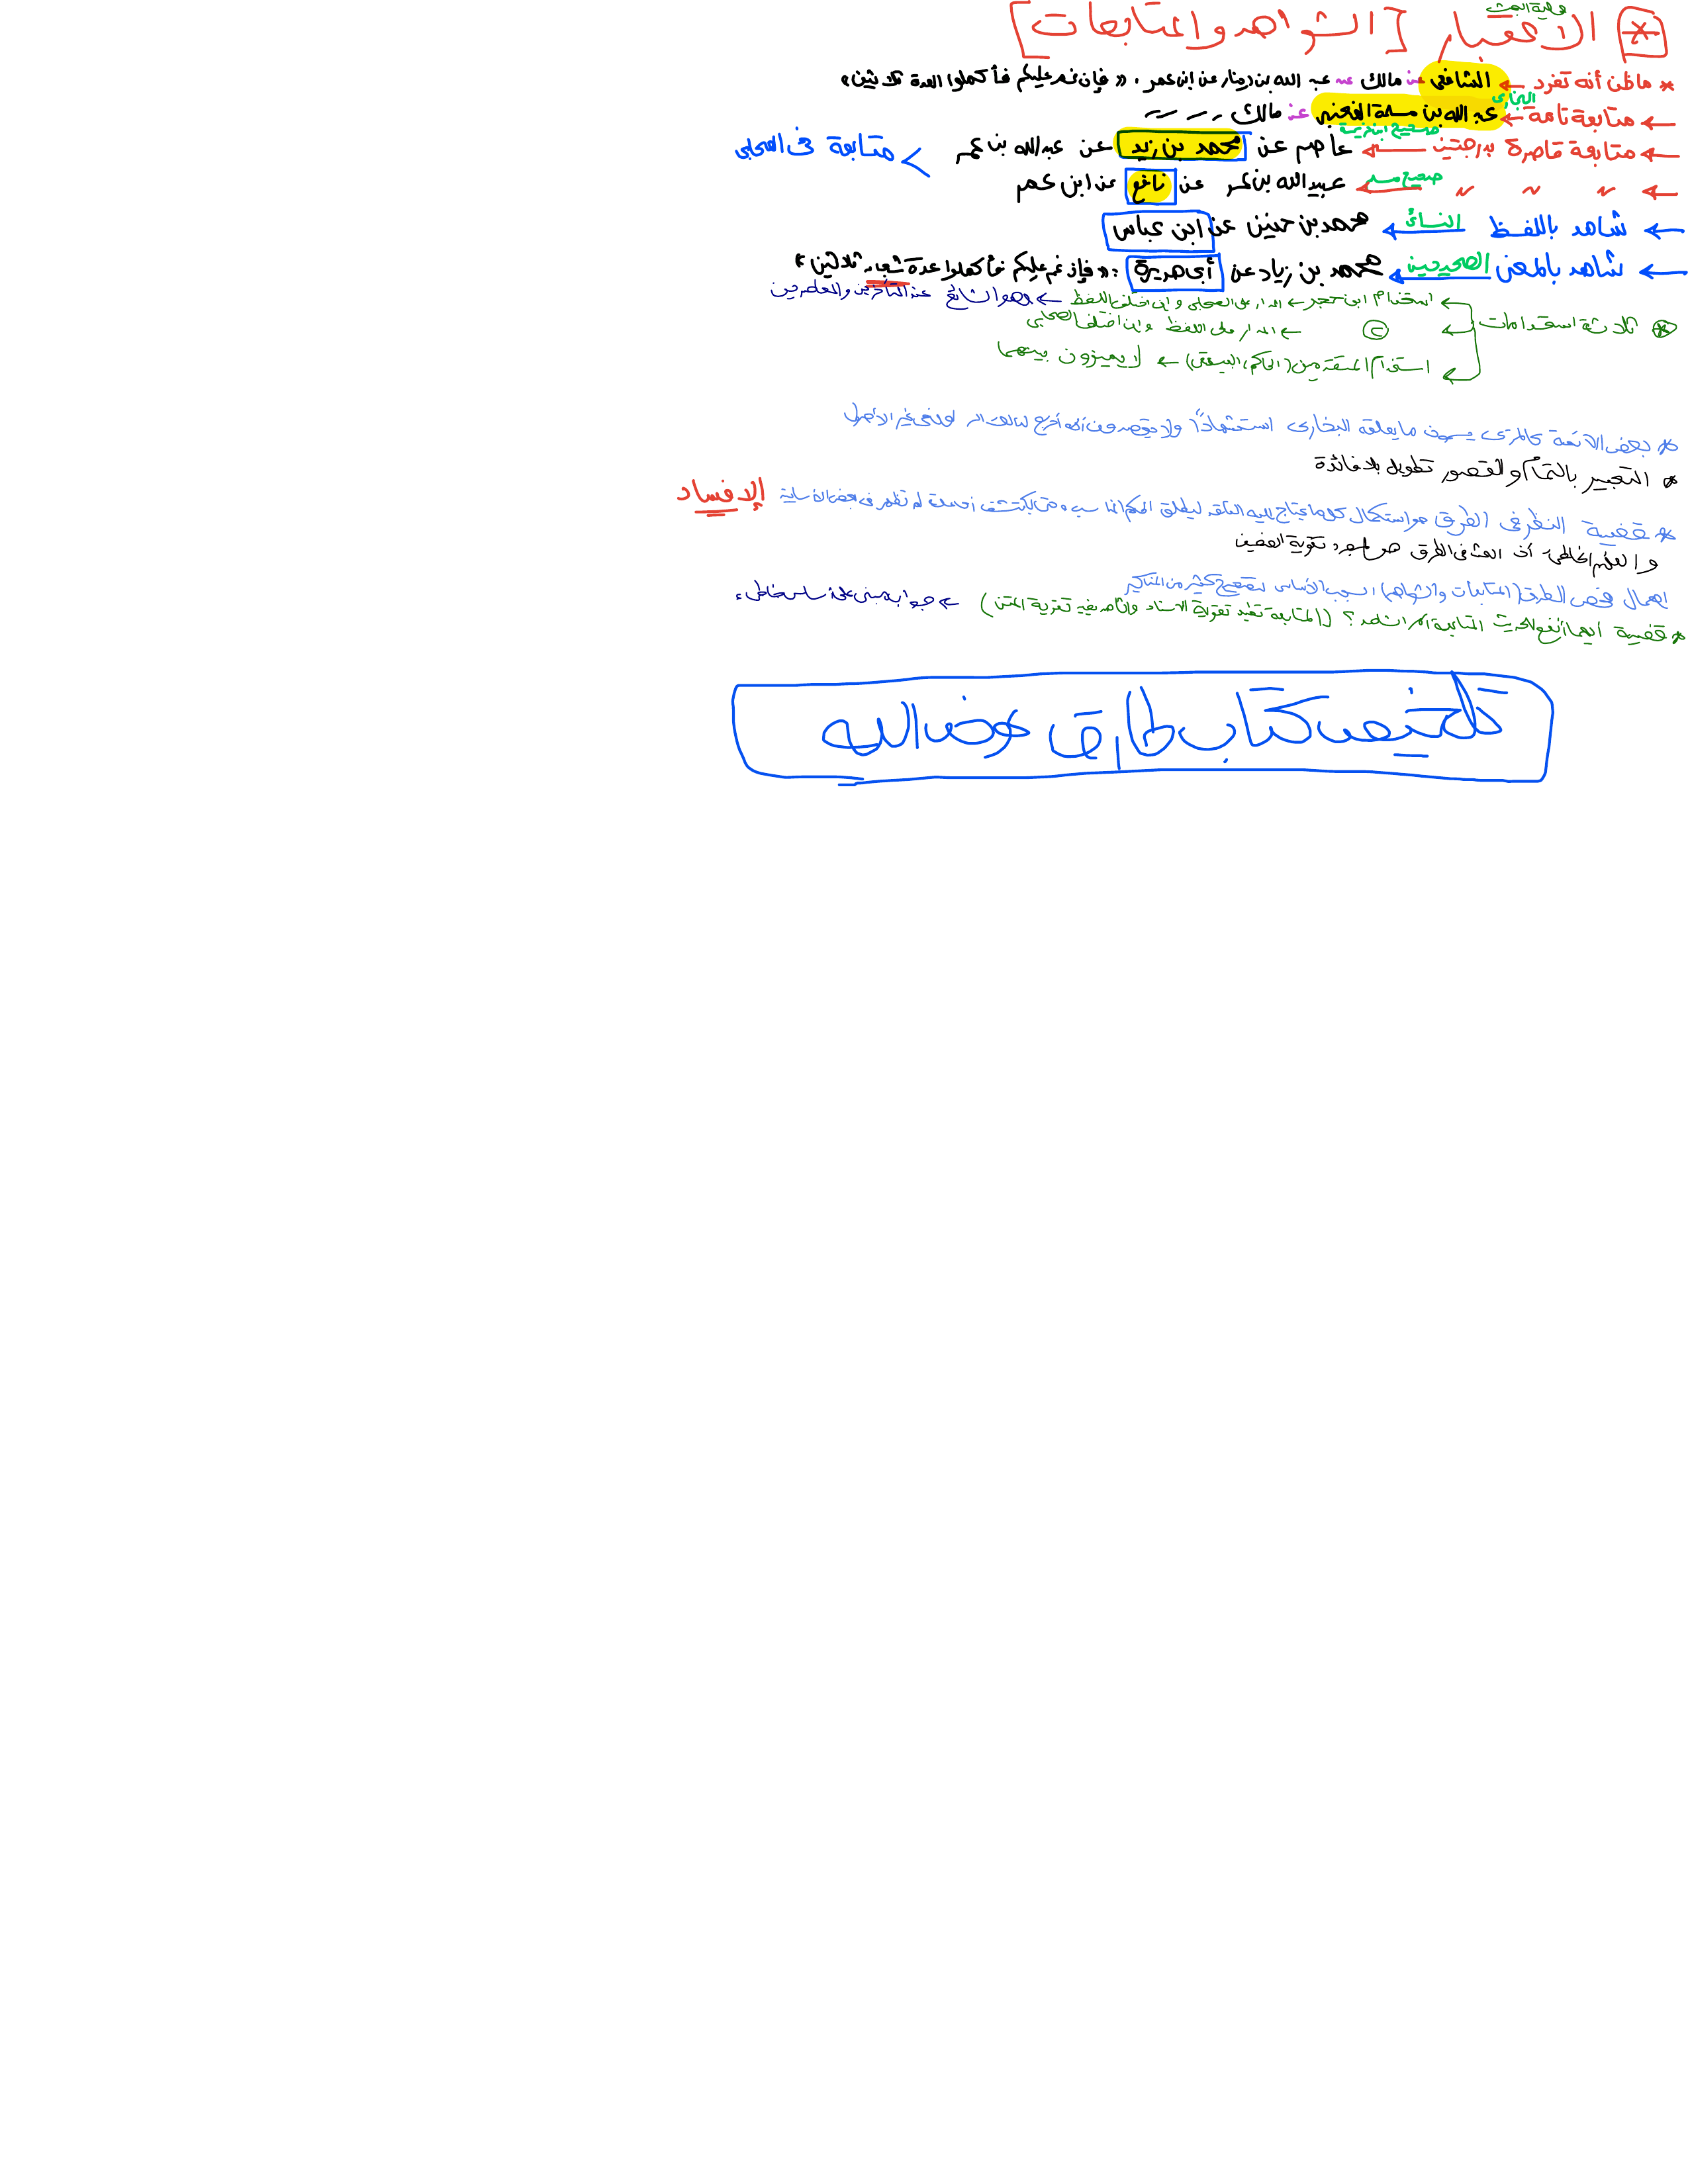 عملية البحث
* الاعتبار [الشواهد والمتابعات]
* ما ظن أنه تفرد ← الشافعي عن مالك عن عبد الله بن دينار عن ابن عمر: «فإن غم عليكم فأكملوا العدة ثلاثين»
← متابعة تامة ← البخاري عبد الله بن مسلمة القعنبي عن مالك
← متابعة قاصرة بدرجتين ← صحيح ابن خزيمة عاصم عن محمد بن زيد عن عبدالله بن عمر > متابعة في الصحابي
← " " " ← صحيح مسلم عبيد الله بن عمر عن نافع عن ابن عمر
← شاهد باللفظ ← النسائي محمد بن حنين عن ابن عباس
← شاهد بالمعنى ← الصحيحين محمد بن زياد عن أبي هريرة: «فإن غم عليكم فأكملوا عدة شعبان ثلاثين»
* ثلاثة استخدامات
← استخدام ابن حجر ← المدار على الصحابي وإن اختلف اللفظ ← وهو الشائع عند المتأخرين والمعاصرين
← ② ← المدار على اللفظ وإن اختلف الصحابي
← استخدام المتقدمين (الحاكم، البيهقي) ← لا يميزون بينهما
* بعض الأئمة كالمزي يسمون ما يعلقه البخاري استشهاداً ولا يقصدون أنه أخرج له في غير الأصول
* التعبير بالتمام والقصور تطويل بلا فائدة
* قضية النظر في الطرق هو استكمال كل ما يحتاج إليه الناقد ليطلق الحكم المناسب ومتى يكتشف لم تظهر في بعض الأسانيد الإفساد
والفهم الخاطئ: أن البحث في الطرق هو لمجرد تقوية الضعيف
إهمال فحص الطرق (المتابعات والشواهد) السبب الأساس لتصحيح كثير من المناكير
* قضية أيهما أنفع للحديث المتابعة أم الشاهد؟ (المتابعة تفيد تقوية الاسناد والشاهد يفيد تقوية المتن) ← جوابه مبني على أساس خاطئ
تلخيص كتاب طارق عوض الله